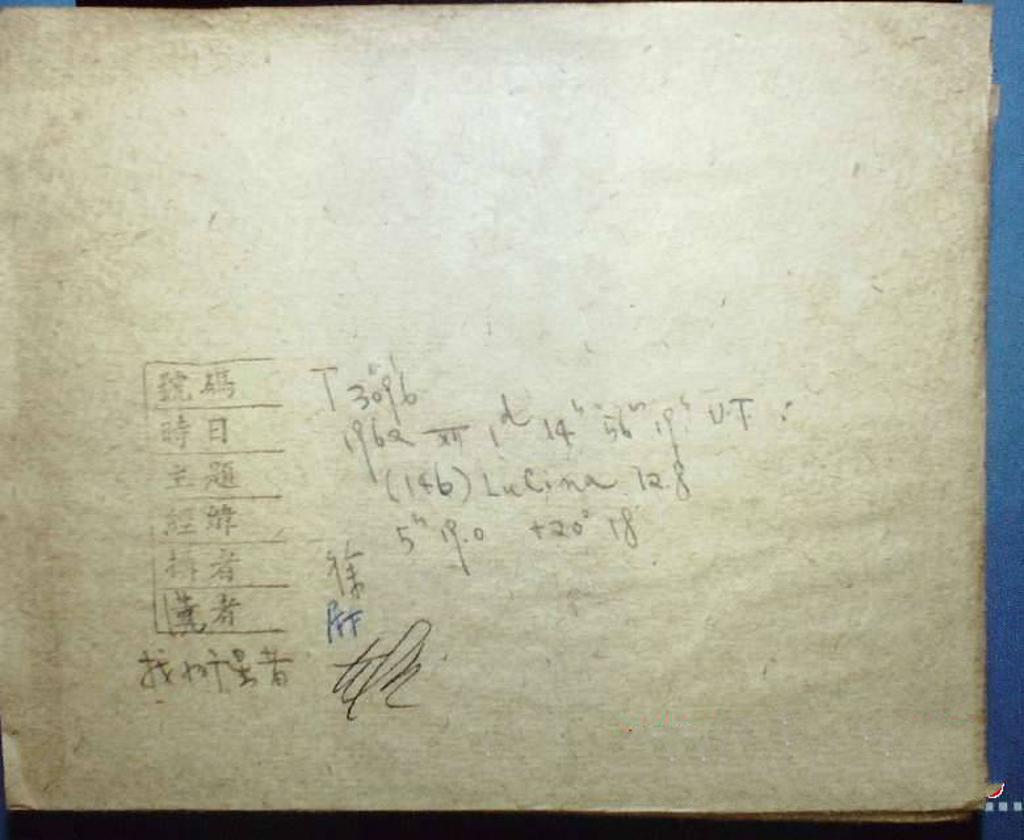 號碼 T 3096
時日 1962 XII 1d 14h 56m 19s U.T.
主題 (146) Lucina 12.8
經緯 5h 19.0 +20° 18'
攝者 徐
讀者
找小行星者